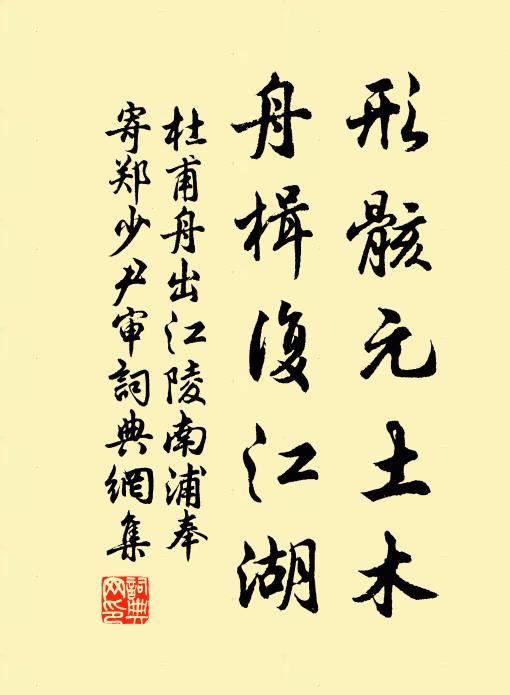 形骸元土木
舟楫復江湖
杜甫舟出江陵南浦奉
寄郑少尹审詞典網集
詞典網印